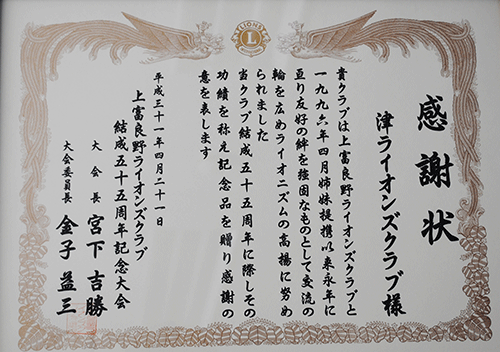 LIONS
L
感謝状
津ライオンズクラブ様
貴クラブは上富良野ライオンズクラブと
一九九六年四月姉妹提携以来永年に
亘り友好の絆を強固なものとして交流の
輪を広めライオニズムの高揚に努め
られました
当クラブ結成五十五周年に際しその
功績を称え記念品を贈り感謝の
意を表します
平成三十一年四月二十一日
上富良野ライオンズクラブ
結成五十五周年記念大会
大会長 宮下吉勝
大会委員長 金子益三